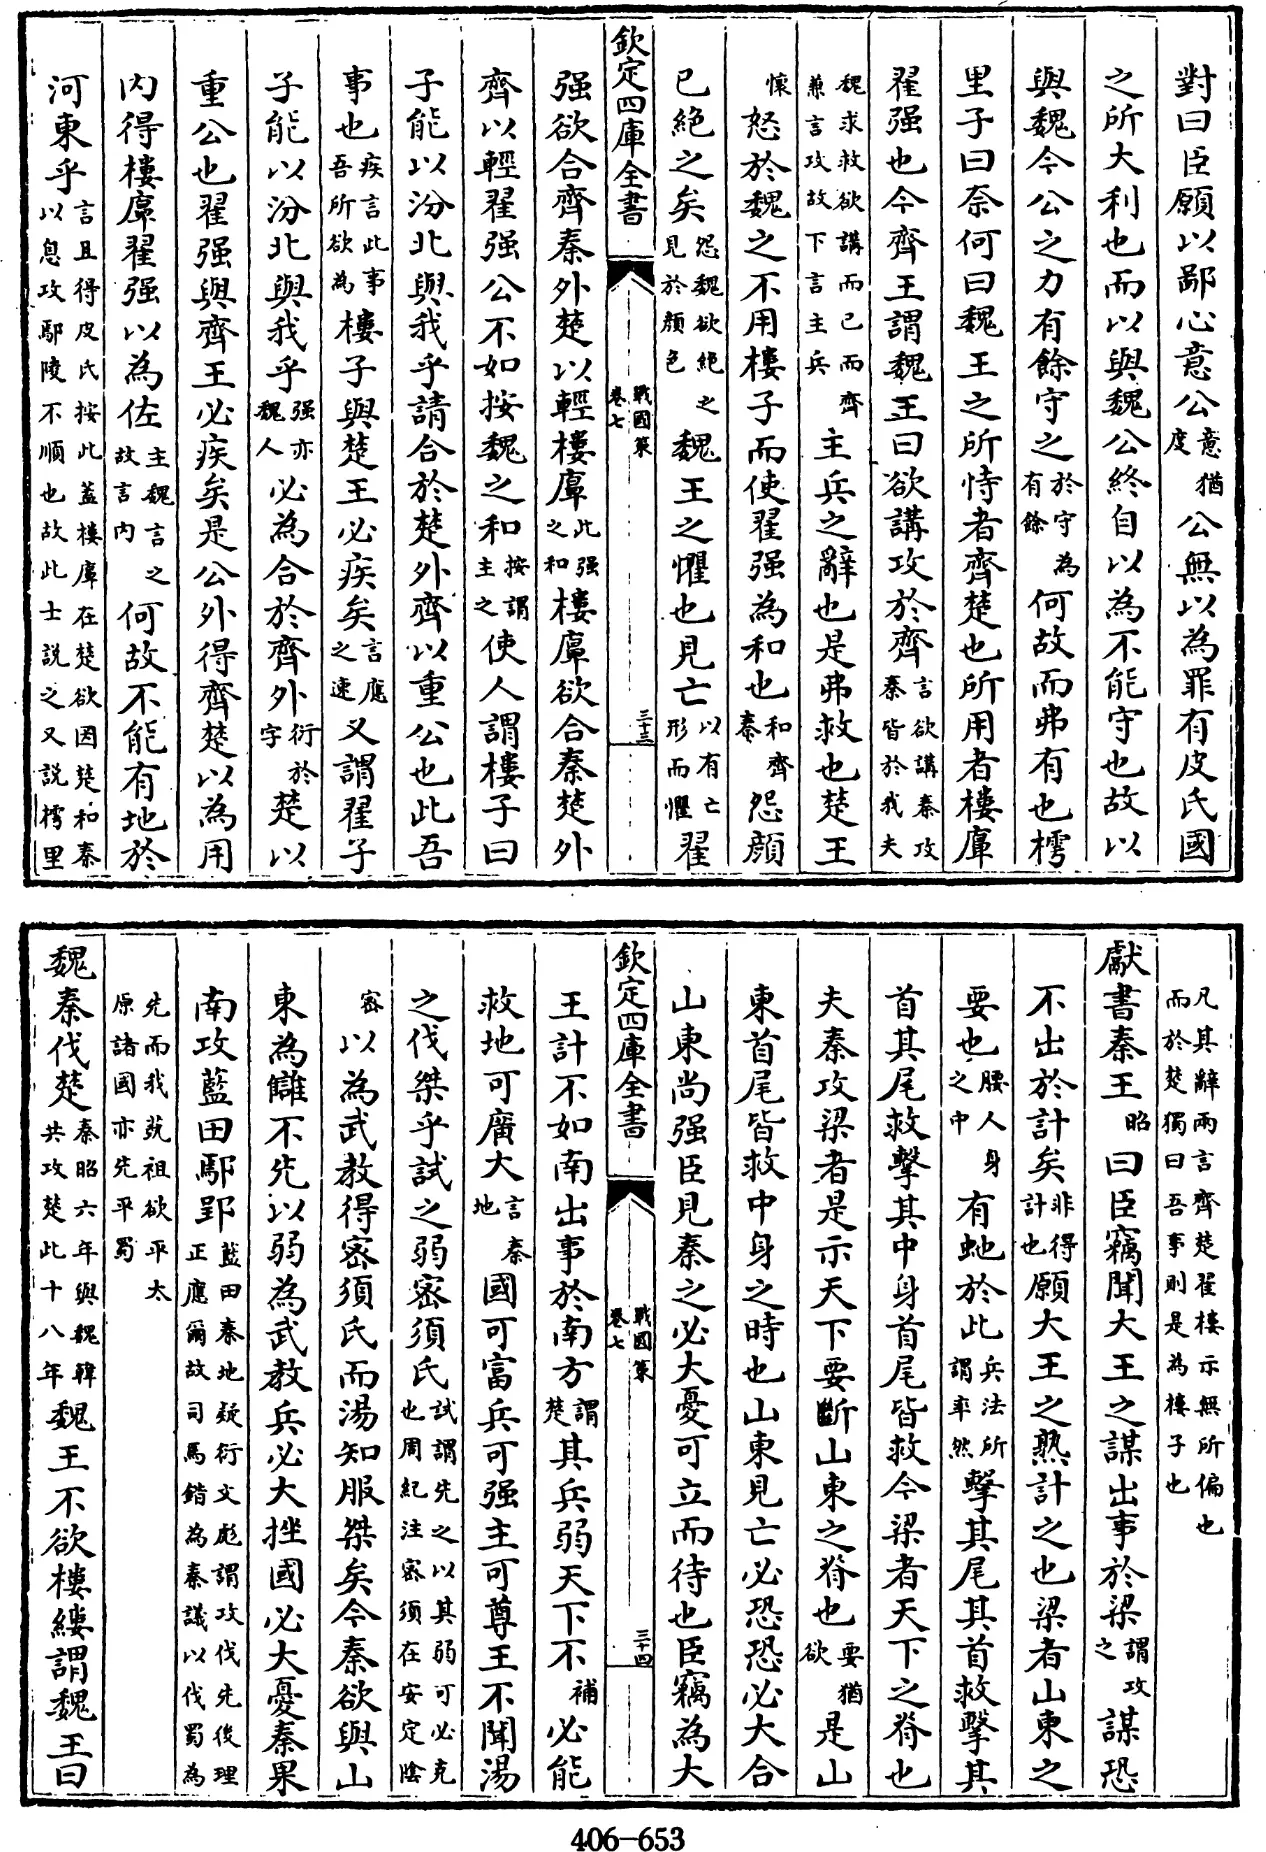 對曰臣願以鄙心意公意猶度公無以為罪有皮氏國
之所大利也而以與魏公終自以為不能守也故以
與魏今公之力有餘守之於守為有餘何故而弗有也樗
里子曰奈何曰魏王之所恃者齊楚也所用者樓𢈪
翟强也今齊王謂魏王曰欲講攻於齊言欲講秦攻秦皆於我夫
魏求救欲講而已而齊兼言攻故下言主兵主兵之辭也是弗救也楚王
懷怒於魏之不用樓子而使翟强為和也和齊秦怨顔
已絶之矣怨魏欲絶之見於顔色魏王之懼也見亡以有亡形而懼翟
欽定四庫全書
戰國策
卷七
三十三
强欲合齊秦外楚以輕樓𢈪此强之和樓𢈪欲合秦楚外
齊以輕翟强公不如按魏之和按謂主之使人謂樓子曰
子能以汾北與我乎請合於楚外齊以重公也此吾
事也疾言此事吾所欲為樓子與楚王必疾矣言應之速又謂翟子
子能以汾北與我乎强亦魏人必為合於齊外衍於字楚以
重公也翟强與齊王必疾矣是公外得齊楚以為用
内得樓𢈪翟强以為佐主魏言之故言内何故不能有地於
河東乎言且得皮氏按此蓋樓𢈪在楚欲因楚和秦以息攻鄢陵不順也故此士説之又説樗里
凡其辭兩言齊楚翟樓示無所偏也而於楚獨曰吾事則是為樓子也
獻書秦王昭曰臣竊聞大王之謀出事於梁謂攻之謀恐
不出於計矣非得計也願大王之熟計之也梁者山東之
要也腰人身之中有虵於此兵法所謂率然擊其尾其首救擊其
首其尾救擊其中身首尾皆救今梁者天下之脊也
夫秦攻梁者是示天下要斷山東之脊也要猶欲是山
東首尾皆救中身之時也山東見亡必恐恐必大合
山東尚强臣見秦之必大憂可立而待也臣竊為大
欽定四庫全書
戰國策
卷七
三十四
王計不如南出事於南方謂楚其兵弱天下不補必能
救地可廣大言秦地國可富兵可强主可尊王不聞湯
之伐桀乎試之弱密須氏試謂先之以其弱可必克也周紀注密須在安定陰
密以為武教得密須氏而湯知服桀矣今秦欲與山
東為讎不先以弱為武教兵必大挫國必大憂秦果
南攻藍田鄢郢藍田秦地疑衍文彪謂攻伐先後理正應爾故司馬錯為秦議以伐蜀為
先而我藝祖欲平太原諸國亦先平蜀
魏秦伐楚秦昭六年與魏韓共攻楚此十八年魏王不欲樓緩謂魏王曰
406-653